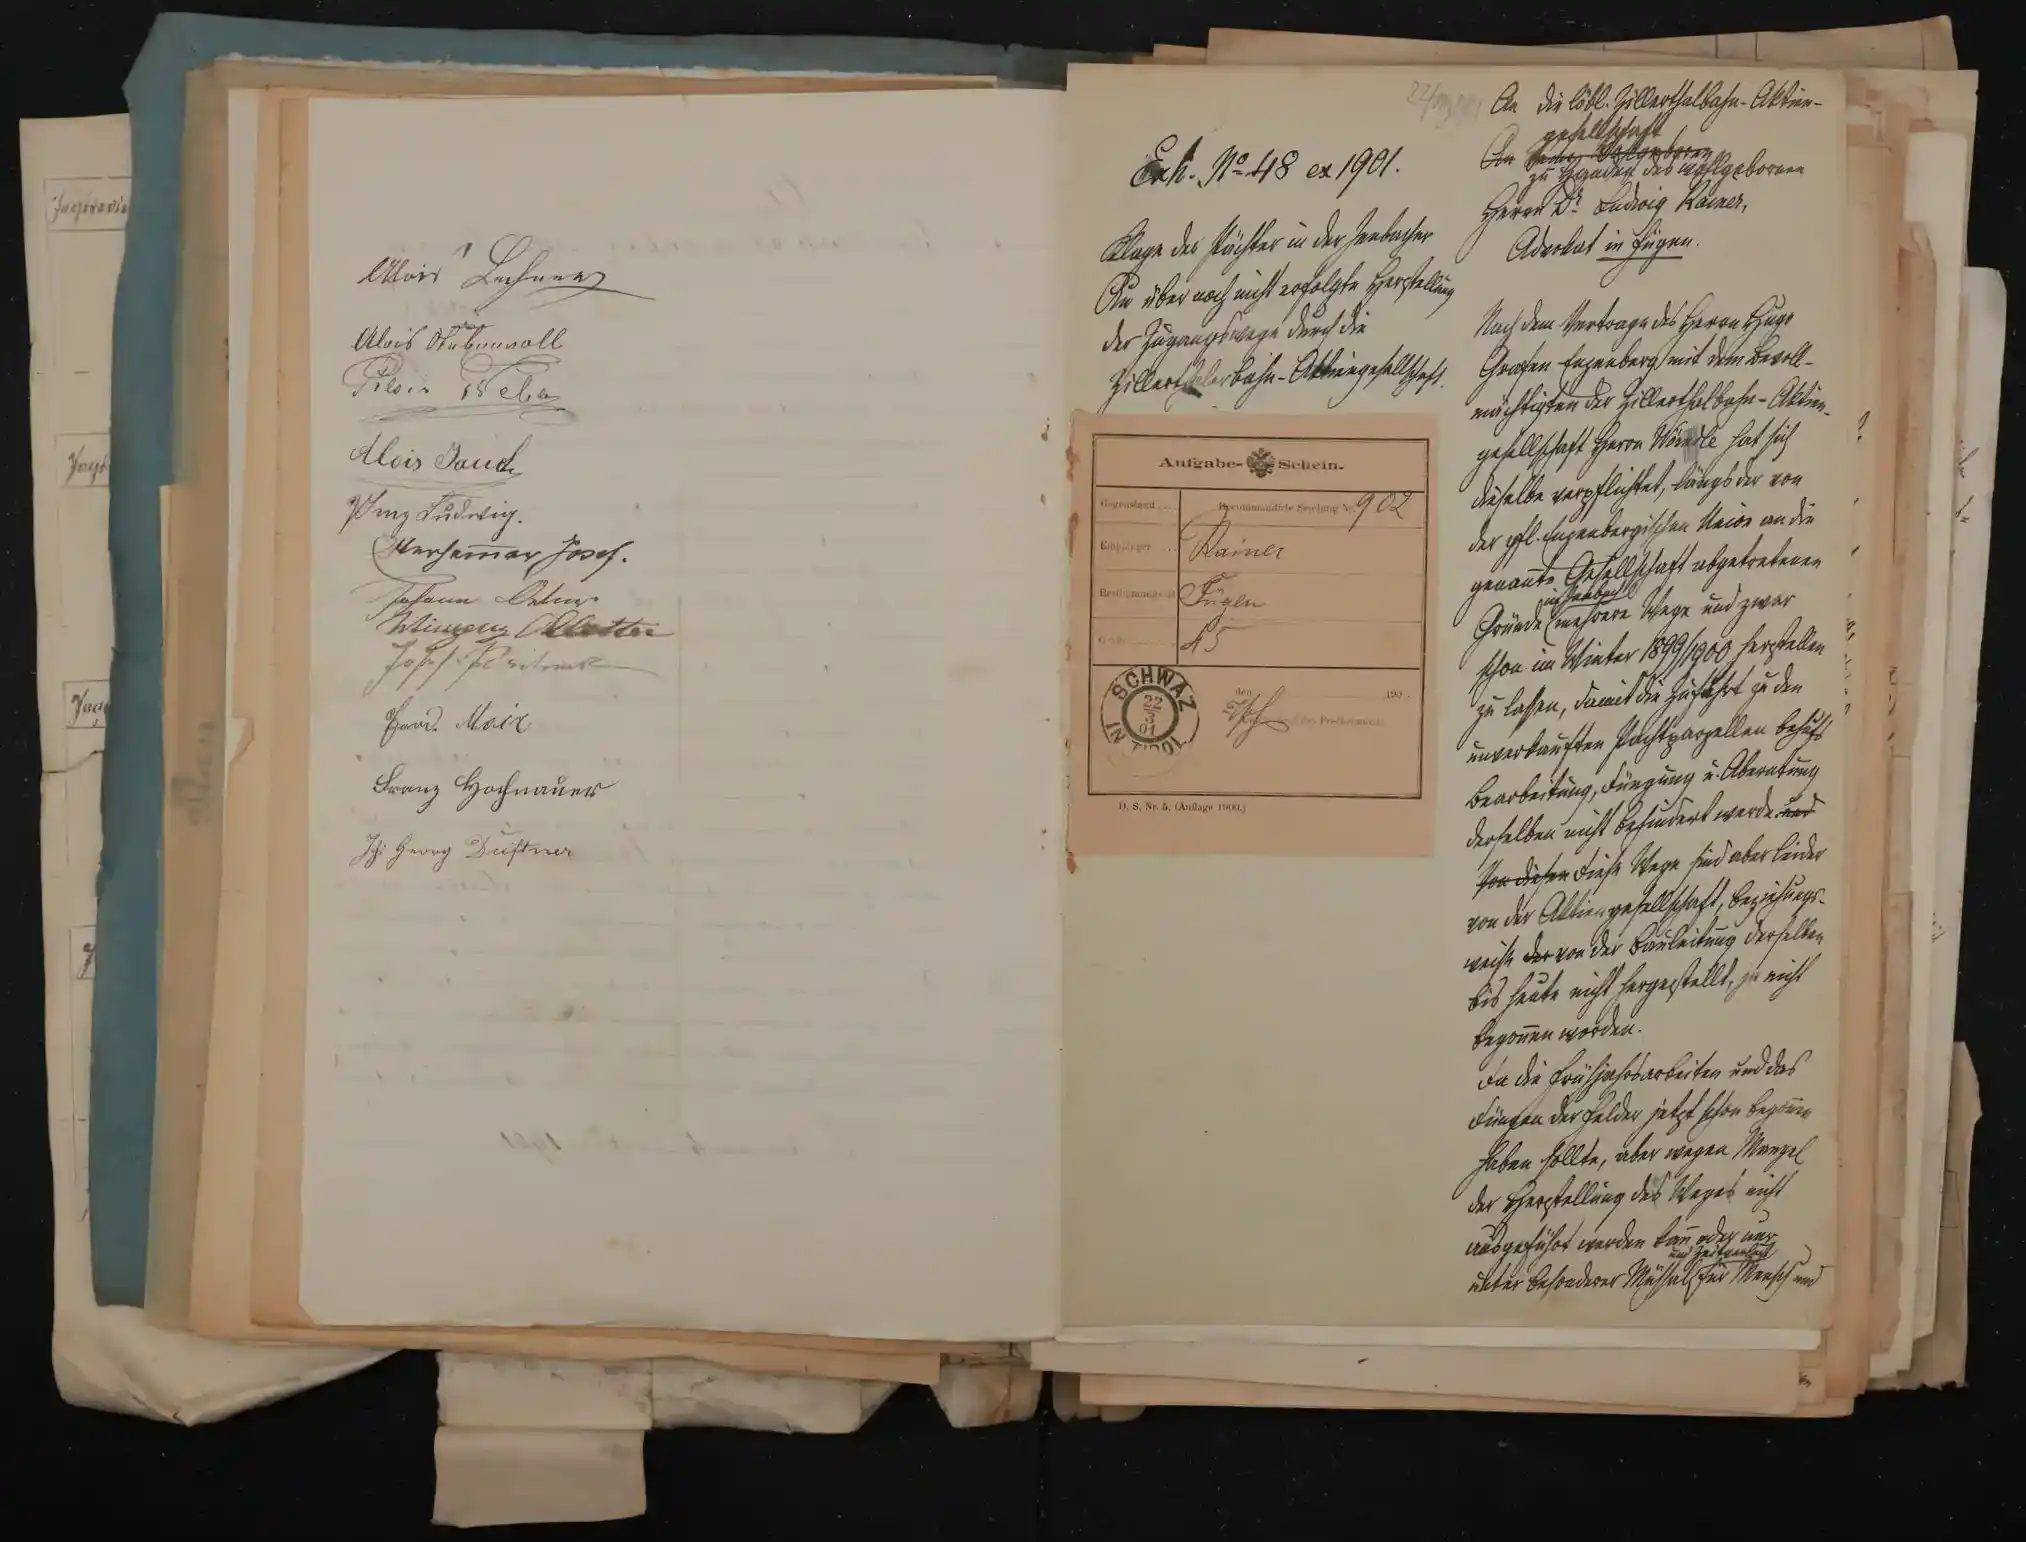 Alois Lechner
Alois Stubenvoll
Alois Jauch
Prug Ludwig.
Kerhammer Josef.
Johann
Josef
Ferd. Mair
Franz Hochnauer
Georg Duftner
Exh. No 48 ex 1901.
Klage der Pächter in der Jenbacher
Au über noch nicht erfolgte Herstellung
der Zugangswege durch die
Zillerthalerbahn-Aktiengesellschaft.
Aufgabe-Schein.
Gegenstand
Recommandirte Sendung Nr. 902
Empfänger
Rainer
Bestimmungsort
Fügen
den
190
D. S. Nr. 5. (Auflage 1900.)
SCHWAZ
22
3
01
IN TIROL
An die löbl. Zillerthalbahn-Aktien-
gesellschaft
An
zu Handen des wohlgebornen
Herrn Dr. Ludwig Rainer,
Advokat in Fügen.
Nach dem Vertrage des Herrn Hugo
Grafen Enzenberg mit dem bevoll-
mächtigten der Zillerthalbahn-Aktien-
gesellschaft Herrn hat sich
dieselbe verpflichtet, längs der von
der gfl. Enzenbergischen an die
genannte Gesellschaft abgetretenen
in Jenbach
Gründe mehrere Wege und zwar
schon im Winter 1899/1900 herstellen
zu lassen, damit die Zufahrt zu den
unverkauften Pachtparzellen behufs
Bearbeitung, Düngung u. Aberntung
derselben nicht behindert werde und
Von diesen Diese Wege sind aber leider
von der Aktiengesellschaft, beziehungs-
weise der von der Bauleitung derselben
bis heute nicht hergestellt, ja nicht
begonnen worden.
Da die Frühjahrsarbeiten und das
Düngen der Felder jetzt schon begonnen
haben sollte, aber wegen Mangel
der Herstellung des Weges nicht
ausgeführt werden kann oder nur
und Zeitverlust
unter besonderer Mühsal für Mensch und